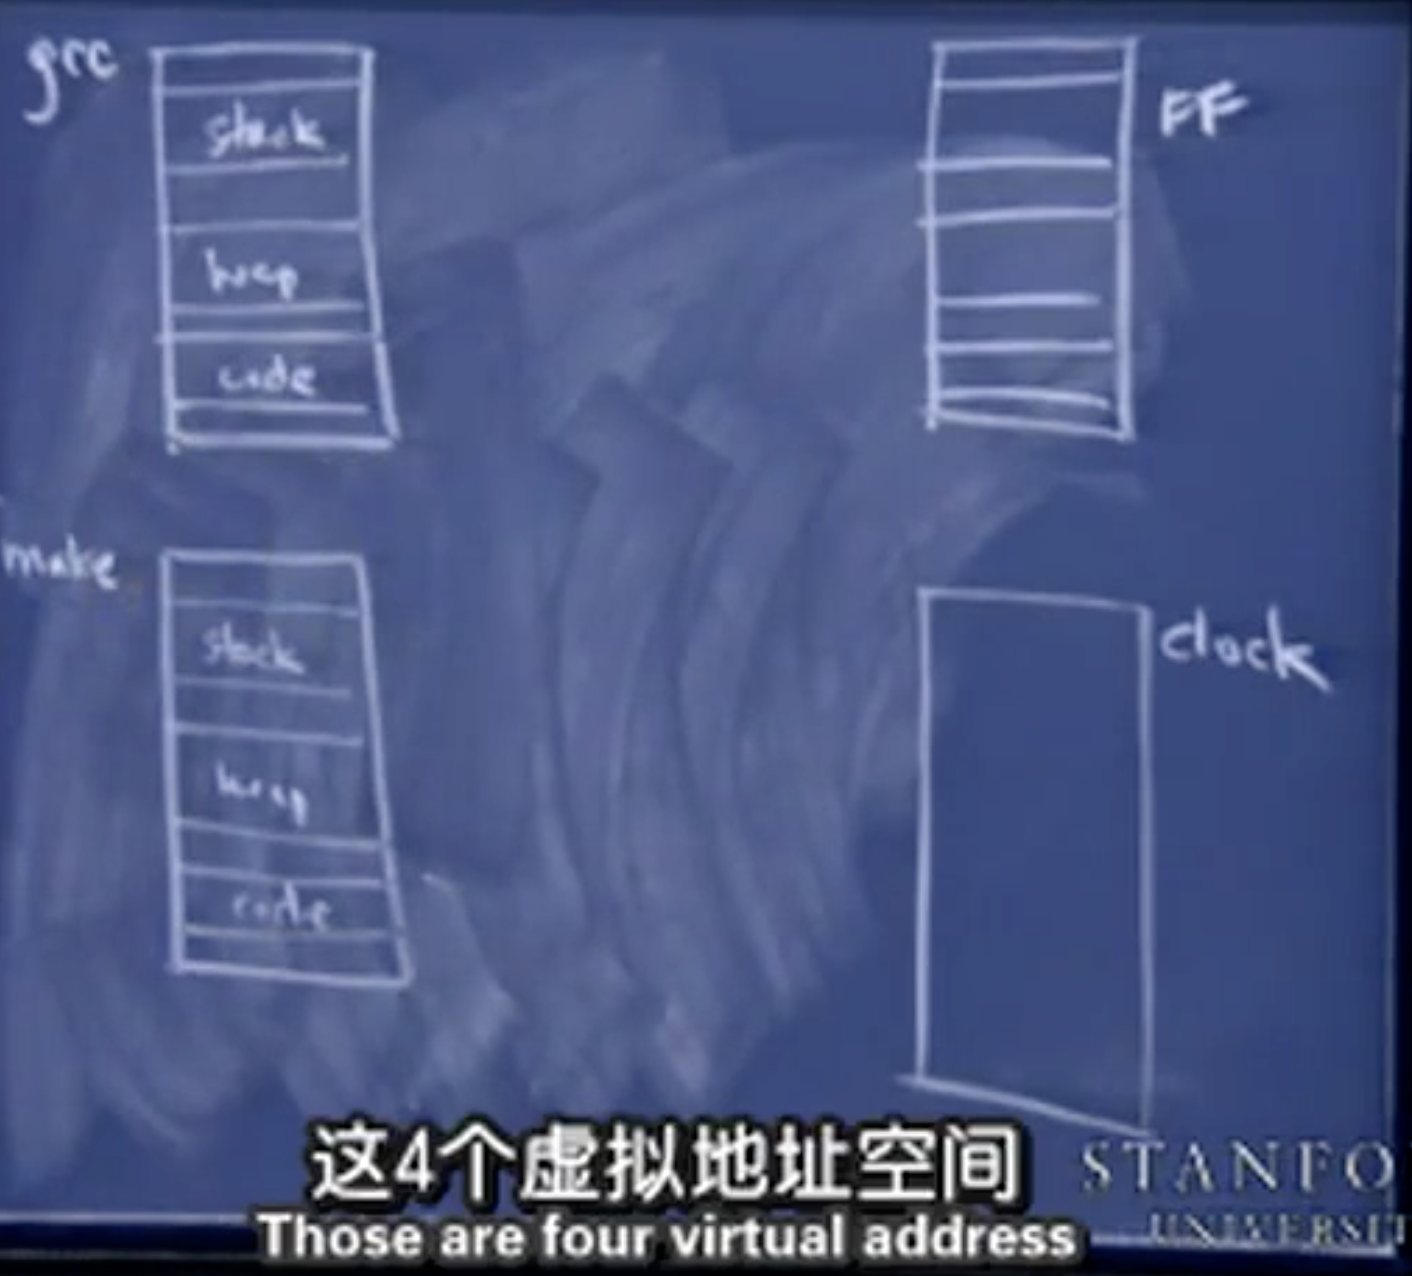 gcc
stack
heap
code
FF
make
stack
heap
code
clock
这4个虚拟地址空间
Those are four virtual address
STANFO
UNIVERSIT